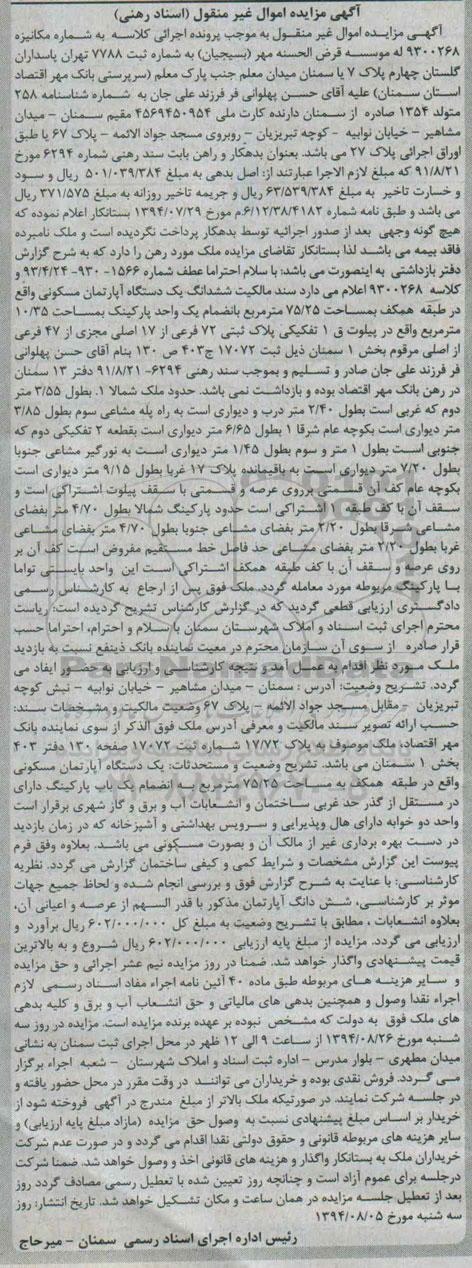 آگهی مزایده اموال غیر منقول (اسناد رهنی)
آگهی مزایده اموال غیر منقول به موجب پرونده اجرائی کلاسه به شماره مکانیزه
۹۳۰۰۲۶۸ له موسسه قرض الحسنه مهر (بسیجیان) به شماره ثبت ۷۷۸۸ تهران پاسداران
گلستان چهارم پلاک ۷ یا سمنان میدان معلم جنب پارک معلم (سرپرستی بانک مهر اقتصاد
استان سمنان) علیه آقای حسن پهلوانی فر فرزند علی جان به شماره شناسنامه ۲۵۸
متولد ۱۳۵۴ صادره از سمنان دارنده کارت ملی ۴۵۶۹۴۵۰۹۵۴ مقیم سمنان – میدان
مشاهیر – خیابان نوابیه - کوچه تبریزیان – روبروی مسجد جواد الائمه – پلاک ۶۷ یا طبق
اوراق اجرائی پلاک ۲۷ می باشد. بعنوان بدهکار و راهن بابت سند رهنی شماره ۶۲۹۴ مورخ
۹۱/۸/۲۱ که مبلغ لازم الاجرا عبارتند از: اصل بدهی به مبلغ ۵۰۱/۰۳۹/۳۸۴ ریال و سود
و خسارت تاخیر به مبلغ ۶۳/۵۳۹/۳۸۴ ریال و جریمه تاخیر روزانه به مبلغ ۳۷۱/۵۷۵ ریال
می باشد و طبق نامه شماره ۶/۱۲/۳۸/۴۱۸۲.م مورخ ۱۳۹۴/۰۷/۲۹ بستانکار اعلام نموده که
هیچ گونه وجهی بعد از صدور اجرائیه توسط بدهکار پرداخت نگردیده است و ملک نامبرده
فاقد بیمه می باشد لذا بستانکار تقاضای مزایده ملک مورد رهن را دارد که به شرح گزارش
دفتر بازداشتی به اینصورت می باشد: با سلام احتراما عطف شماره ۱۵۶۶- ۹۳۰- ۹۳/۴/۲۴
کلاسه ۹۳۰۰۲۶۸ اعلام می دارد سند مالکیت ششدانگ یک دستگاه آپارتمان مسکونی واقع
در طبقه همکف بمساحت ۷۵/۲۵ مترمربع بانضمام یک واحد پارکینگ بمساحت ۱۰/۳۵
مترمربع واقع در پیلوت ق ۱ تفکیکی پلاک ثبتی ۷۲ فرعی از ۱۷ اصلی مجزی از ۴۷ فرعی
از اصلی مرقوم بخش ۱ سمنان ذیل ثبت ۱۷۰۷۲ ج۴۰۳ ص ۱۳۰ بنام آقای حسن پهلوانی
فر فرزند علی جان صادر و تسلیم و بموجب سند رهنی ۶۲۹۴- ۹۱/۸/۲۱ دفتر ۱۳ سمنان
در رهن بانک مهر اقتصاد بوده و بازداشت نمی باشد. حدود ملک شمالا ۱. بطول ۳/۵۵ متر
دوم که غربی است بطول ۲/۴۰ متر درب و دیواری است به راه پله مشاعی سوم بطول ۳/۸۵
متر دیواری است بکوچه عام شرقا ۱ بطول ۶/۶۵ متر دیواری است بقطعه ۲ تفکیکی دوم که
جنوبی است بطول ۱ متر و سوم بطول ۱/۴۵ متر دیواری است به نورگیر مشاعی جنوبا
بطول ۷/۲۰ متر دیواری است به باقیمانده پلاک ۱۷ غربا بطول ۹/۱۵ متر دیواری است
بکوچه عام کف آن قسمتی برروی عرصه و قسمتی با سقف پیلوت اشتراکی است و
سقف آن با کف طبقه ۱ اشتراکی است حدود پارکینگ شمالا بطول ۴/۷۰ متر بفضای
مشاعی شرقا بطول ۲/۲۰ متر بفضای مشاعی جنوبا بطول ۴/۷۰ متر بفضای مشاعی
غربا بطول ۲/۲۰ متر بفضای مشاعی حد فاصل خط مستقیم مفروض است کف آن بر
روی عرصه و سقف آن با کف طبقه همکف اشتراکی است این واحد بایستی تواما
با پارکینگ مربوطه مورد معامله گردد. ملک فوق پس از ارجاع به کارشناس رسمی
دادگستری ارزیابی قطعی گردید که در گزارش کارشناس تشریح گردیده است: ریاست
محترم اجرای ثبت اسناد و املاک شهرستان سمنان با سلام و احترام، احتراما حسب
قرار صادره از سوی آن سازمان محترم در معیت نماینده بانک ذینفع نسبت به بازدید
ملک مورد نظر اقدام به عمل آمد و نتیجه کارشناسی و ارزیابی به حضور ایفاد می
گردد. تشریح وضعیت: آدرس : سمنان – میدان مشاهیر – خیابان نوابیه – نبش کوچه
تبریزیان – مقابل مسجد جواد الائمه – پلاک ۶۷ وضعیت مالکیت و مشخصات سند:
حسب ارائه تصویر سند مالکیت و معرفی آدرس ملک فوق الذکر از سوی نماینده بانک
مهر اقتصاد، ملک موصوف به پلاک ۱۷/۷۲ شماره ثبت ۱۷۰۷۲ صفحه ۱۳۰ دفتر ۴۰۳
بخش ۱ سمنان می باشد. تشریح وضعیت و مستحدثات: یک دستگاه آپارتمان مسکونی
واقع در طبقه همکف به مساحت ۷۵/۲۵ مترمربع با انضمام یک باب پارکینگ دارای
در مستقل از گذر حد غربی ساختمان و انشعابات آب و برق و گاز شهری برقرار است
واحد دو خوابه دارای هال وپذیرایی و سرویس بهداشتی و آشپزخانه که در زمان بازدید
در دست بهره برداری غیر از مالک آن و بصورت مسکونی می باشد. بعلاوه وفق فرم
پیوست این گزارش مشخصات و شرایط کمی و کیفی ساختمان گزارش می گردد. نظریه
کارشناسی: با عنایت به شرح گزارش فوق و بررسی انجام شده و لحاظ جمیع جهات
موثر بر کارشناسی، شش دانگ آپارتمان مذکور با قدر السهم از عرصه و اعیانی آن،
بعلاوه انشعابات ، مطابق با تشریح وضعیت به مبلغ کل ۶۰۲/۰۰۰/۰۰۰ ریال برآورد و
ارزیابی می گردد. مزایده از مبلغ پایه ارزیابی ۶۰۲/۰۰۰/۰۰۰ ریال شروع و به بالاترین
قیمت پیشنهادی واگذار خواهد شد. ضمنا در روز مزایده نیم عشر اجرائی و حق مزایده
و سایر هزینه های مربوطه طبق ماده ۴۰ آئین نامه اجراء مفاد اسناد رسمی لازم
اجراء نقدا وصول و همچنین بدهی های مالیاتی و حق انشعاب آب و برق و کلیه بدهی
های ملک فوق به دولت که مشخص نبوده بر عهده برنده مزایده است. مزایده در روز سه
شنبه مورخ ۱۳۹۴/۰۸/۲۶ از ساعت ۹ الی ۱۲ ظهر در محل اجرای ثبت سمنان به نشانی
میدان مطهری – بلوار مدرس – اداره ثبت اسناد و املاک شهرستان – شعبه اجراء برگزار
می گردد. فروش نقدی بوده و خریداران می توانند در وقت مقرر در محل حضور یافته و
در جلسه شرکت نمایند. در صورتیکه ملک بالاتر از مبلغ مندرج در آگهی فروخته شود از
خریدار بر اساس مبلغ پیشنهادی نسبت به وصول حق مزایده (مازاد مبلغ پایه ارزیابی) و
سایر هزینه های مربوطه قانونی و حقوق دولتی نقدا اقدام می گردد و در صورت عدم شرکت
خریداران ملک به بستانکار واگذار و هزینه های قانونی اخذ و وصول خواهد شد. ضمنا شرکت
درجلسه برای عموم آزاد است و چنانچه روز تعیین شده با تعطیل رسمی مصادف گردد روز
بعد از تعطیل جلسه مزایده در همان ساعت و مکان تشکیل خواهد شد. تاریخ انتشار: روز
سه شنبه مورخ ۱۳۹۴/۰۸/۰۵
رئیس اداره اجرای اسناد رسمی سمنان – میرحاج